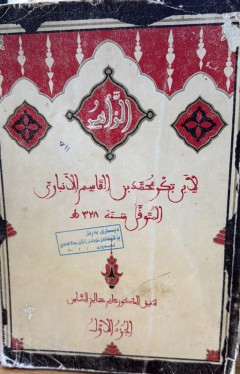 الزاهر
لأبي بكر محمد بن القاسم الأنباري
المتوفى سنة ٣٢٨ هـ
تحقيق الدكتور حاتم صالح الضامن
الجزء الأول